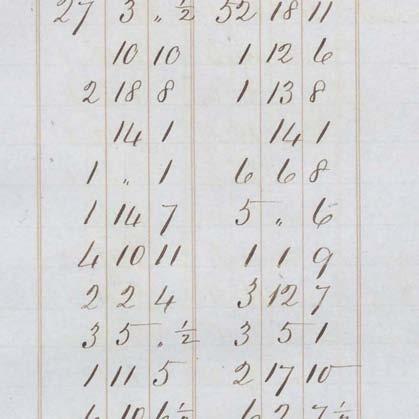 27 3 „ ½ 52 18 11
10 10 1 12 6
2 18 8 1 13 8
14 1 14 1
1 „ 1 6 6 8
1 14 7 5 „ 6
4 10 11 1 1 9
2 2 4 3 12 7
3 5 „ ½ 3 5 1
1 11 5 2 17 10
10